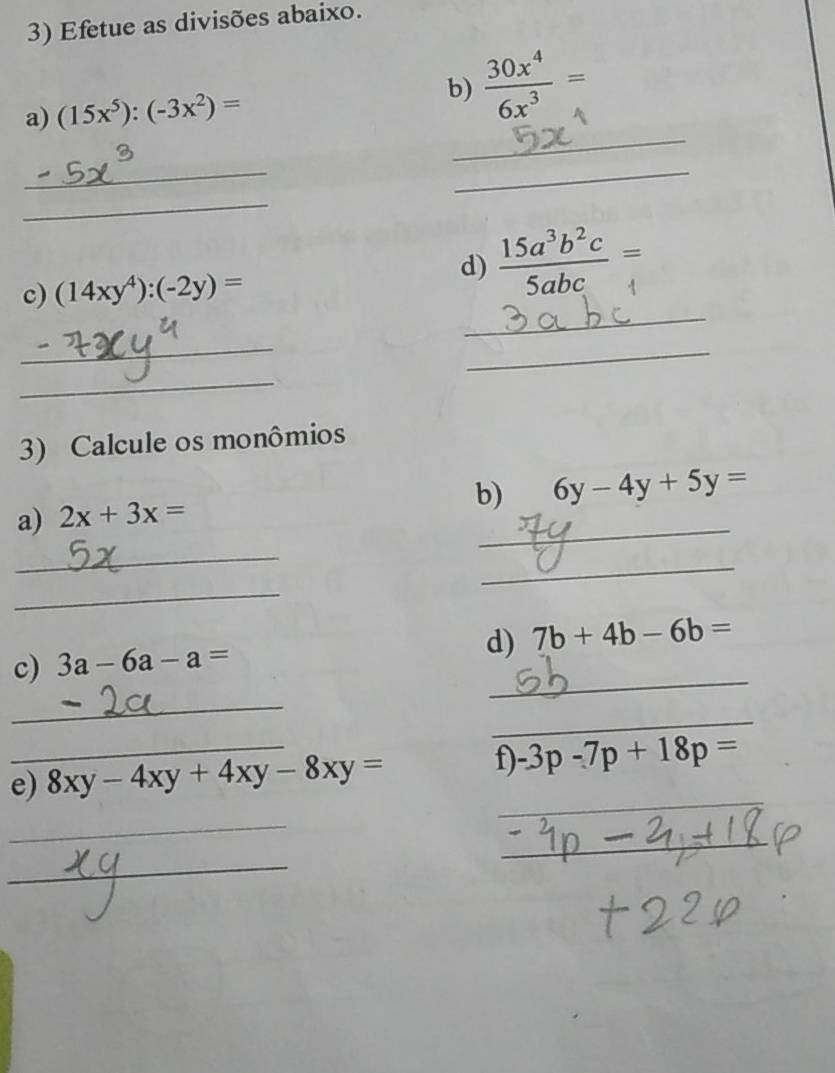 3) Efetue as divisões abaixo.
a) (15x⁵): (-3x²) =
b) 30x⁴/6x³ =
- 5x³
5x¹
c) (14xy⁴):(-2y) =
d) 15a³b²c/5abc =
- 7xy⁴
3abc¹
3) Calcule os monômios
a) 2x + 3x =
b) 6y – 4y + 5y =
5x
7y
c) 3a – 6a – a =
d) 7b + 4b – 6b =
- 2a
5b
e) 8xy – 4xy + 4xy – 8xy =
f)-3p -7p + 18p =
xy
+18p
+22p